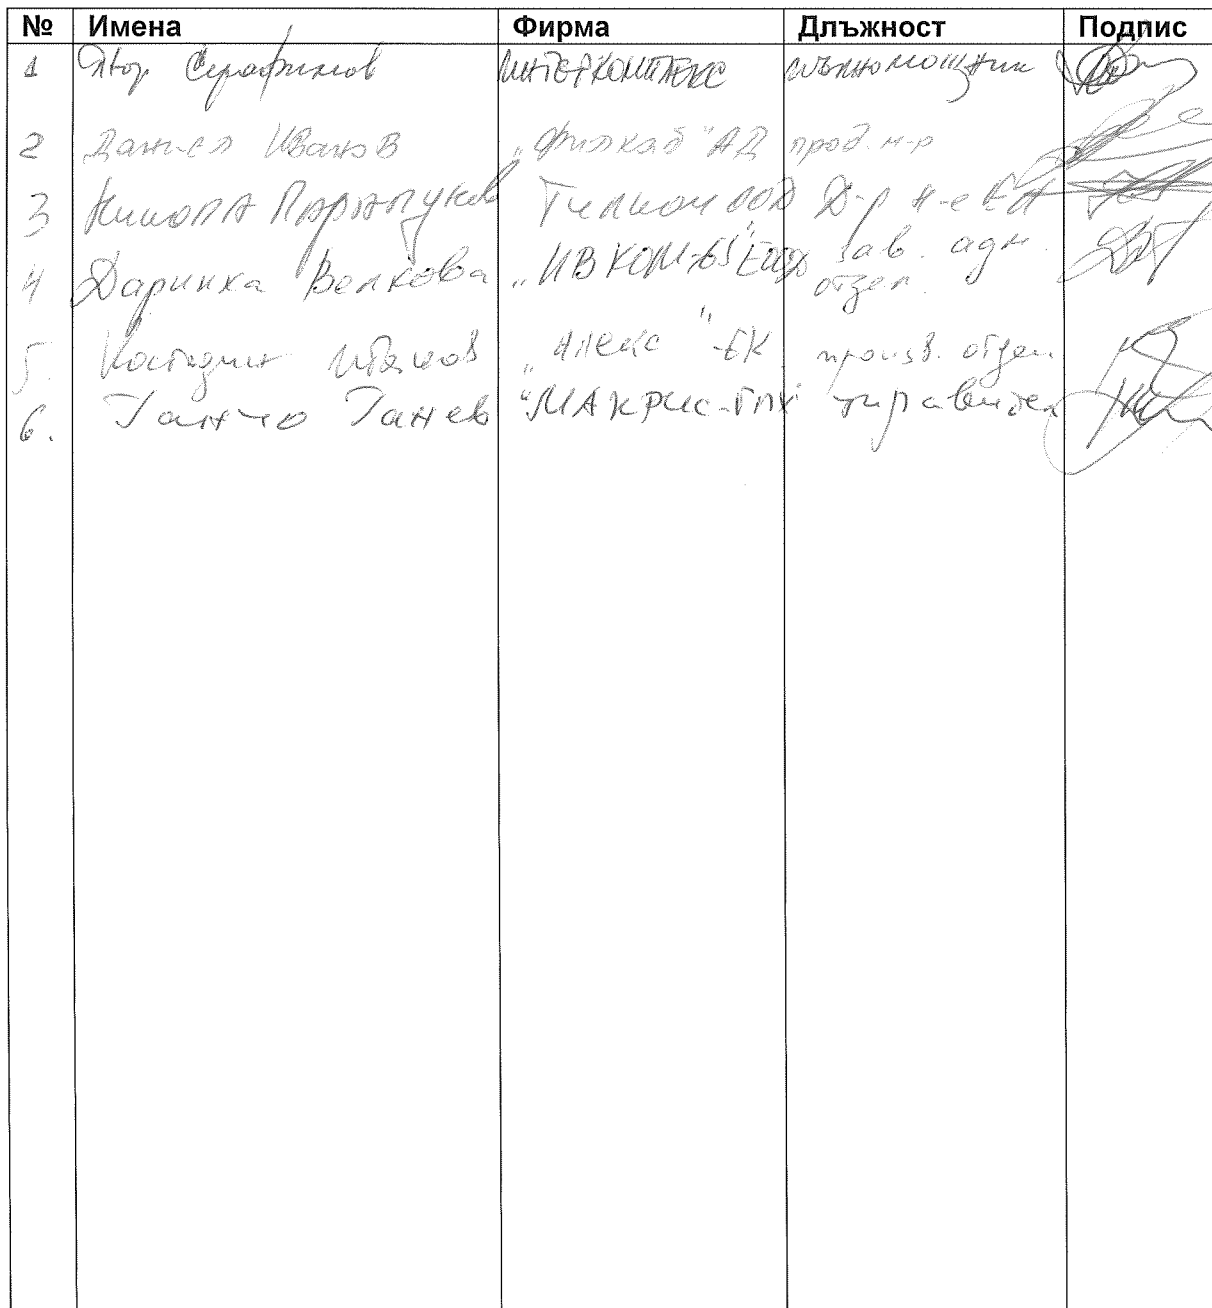 № Имена Фирма Длъжност Подпис
1 Явор Серафимов ИНТЕРКОМПЛЕКС пълномощник
2 Даниел Иванов „Филкаб" АД прод. м-р
3 Никола Парапунов ООД Д-р
4 Даринка Велкова „ИВКОМ-63" ЕООД зав. адм.
отдел.
5. Костадин „Алекс" -БК произв. отдел
6. Ганчо Ганев "МАКРИС-ГПХ" управител